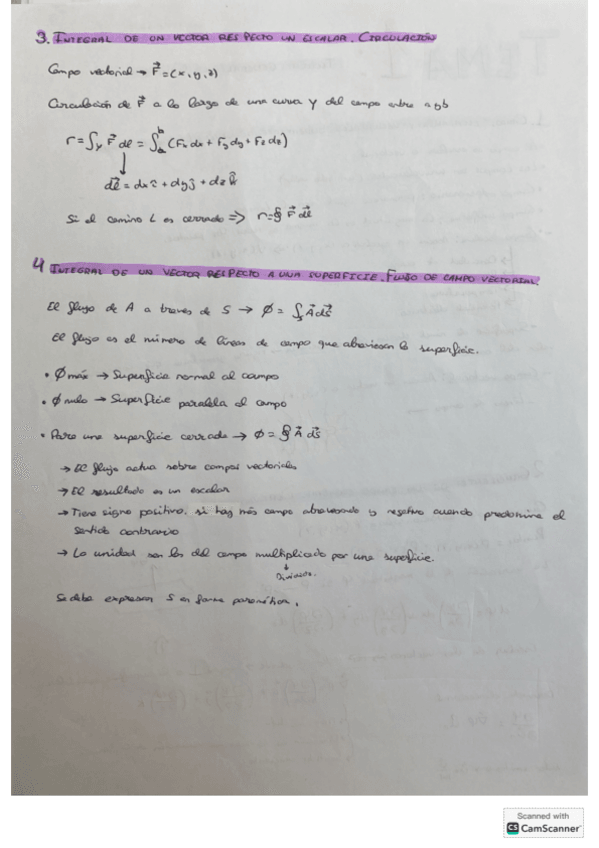 3. INTEGRAL DE UN VECTOR RESPECTO UN ESCALAR. CIRCULACIÓN
Campo vectorial → F⃗ = (x, y, z)
Circulación de F⃗ a lo largo de una curva γ del campo entre a y b
r = ∫γ F⃗ dl = ∫ₐᵇ (Fx dx + Fy dy + Fz dz)
↓
dl⃗ = dx î + dy ĵ + dz k̂
Si el camino L es cerrado => r = ∮ F⃗ dl⃗
4 INTEGRAL DE UN VECTOR RESPECTO A UNA SUPERFICIE. FLUJO DE CAMPO VECTORIAL
El flujo de A a traves de S → Ø = ∫s A⃗ ds⃗
El flujo es el número de líneas de campo que atraviesan la superficie.
• Ø máx → Superficie normal al campo
• Ø nulo → Superficie paralela al campo
• Para una superficie cerrada → Ø = ∮ A⃗ ds⃗
→ El flujo actua sobre campos vectoriales
→ El resultado es un escalar
→ Tiene signo positivo. si hay más campo atravesando y negativo cuando predomine el
sentido contrario
→ La unidad son las del campo multiplicado por una superficie.
↓
Se debe expresar S en forma paramétrica.
Scanned with
CS CamScanner